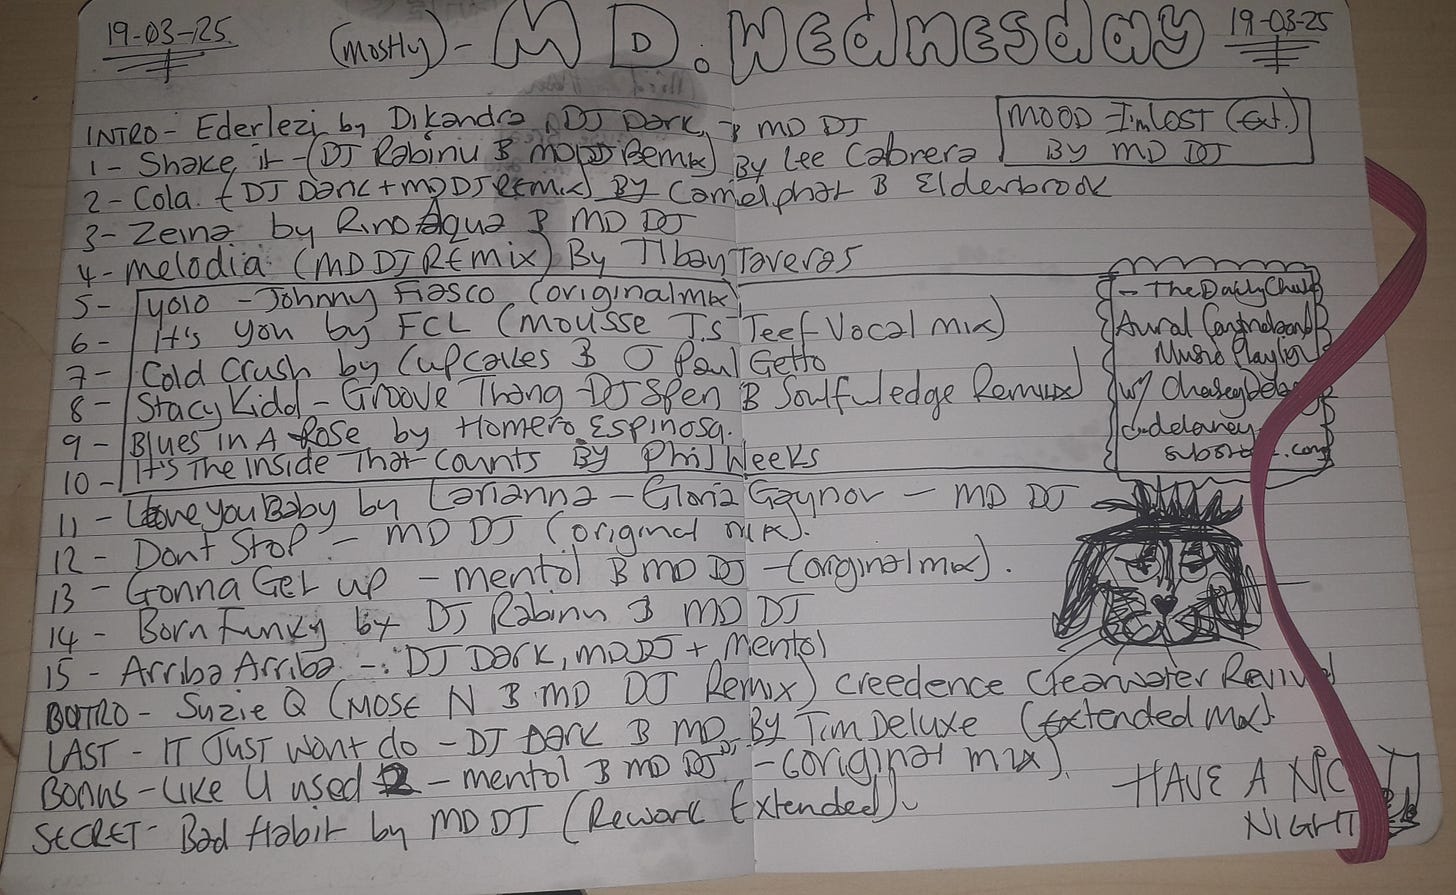 19-03-25
(mostly) - MD. Wednesday
19-03-25
INTRO - Ederlezi by Dikandra, DJ Dark, B MD DJ
MOOD - I'm LOST (Ext.)
BY MD DJ
1 - Shake it - (DJ Rabinu B MD DJ Remix) By Lee Cabrera
2 - Cola. (DJ Dark + MD DJ Remix) By Camelphat B Elderbrook
3 - Zeina by Rino Aqua B MD DJ
4 - Melodia (MD DJ Remix) By Tlbay Taveras
5 - Yolo - Johnny Fiasco (original mix)
6 - It's you by FCL (Mousse T.s Teef Vocal mix)
7 - Cold Crush by Cupcakes B O Paul Getto
8 - Stacy Kidd - Groove Thang DJ Spen B Soulfuledge Remixx)
9 - Blues in A Rose by Homero Espinosa.
10 - It's The Inside That Counts By Phil Weeks
- The Daily
Aural Contraband
Music Playlist
w/
c-delaney
.com
11 - Love you Baby by Larianna - Gloria Gaynor - MD DJ
12 - Dont Stop - MD DJ (original mix).
13 - Gonna Get up - mentol B MD DJ - (original mix).
14 - Born Funky by DJ Rabinu B MD DJ
15 - Arriba Arriba - DJ Dark, MD DJ + Mentol
Suzie Q (MOSE N B MD DJ Remix) Creedence Clearwater Revival
LAST - IT Just Want do - DJ DARK B MD DJ By Tim Deluxe (Extended Mix).
BONUS - Like U used 2 - mentol B MD DJ - (original mix).
SECRET - Bad Habit by MD DJ (Rework Extended).
HAVE A
NIGHT